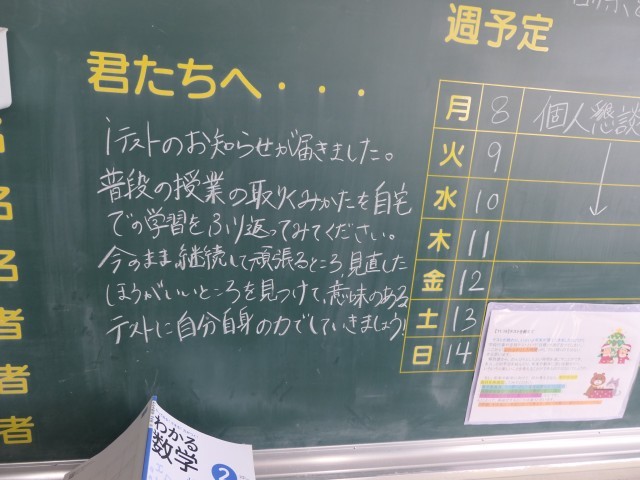 週予定
君たちへ・・・
iテストのお知らせが届きました。
普段の授業の取りくみかたを自宅
での学習をふり返ってみてください。
今のまま継続して頑張るところ、見直した
ほうがいいところを見つけて、意味のある
テストに自分自身の力でしていきましょう!
月 8 個人懇談
火 9
水 10
木 11
金 12
土 13
日 14
名
名
者
者
者
わかる
数学
2